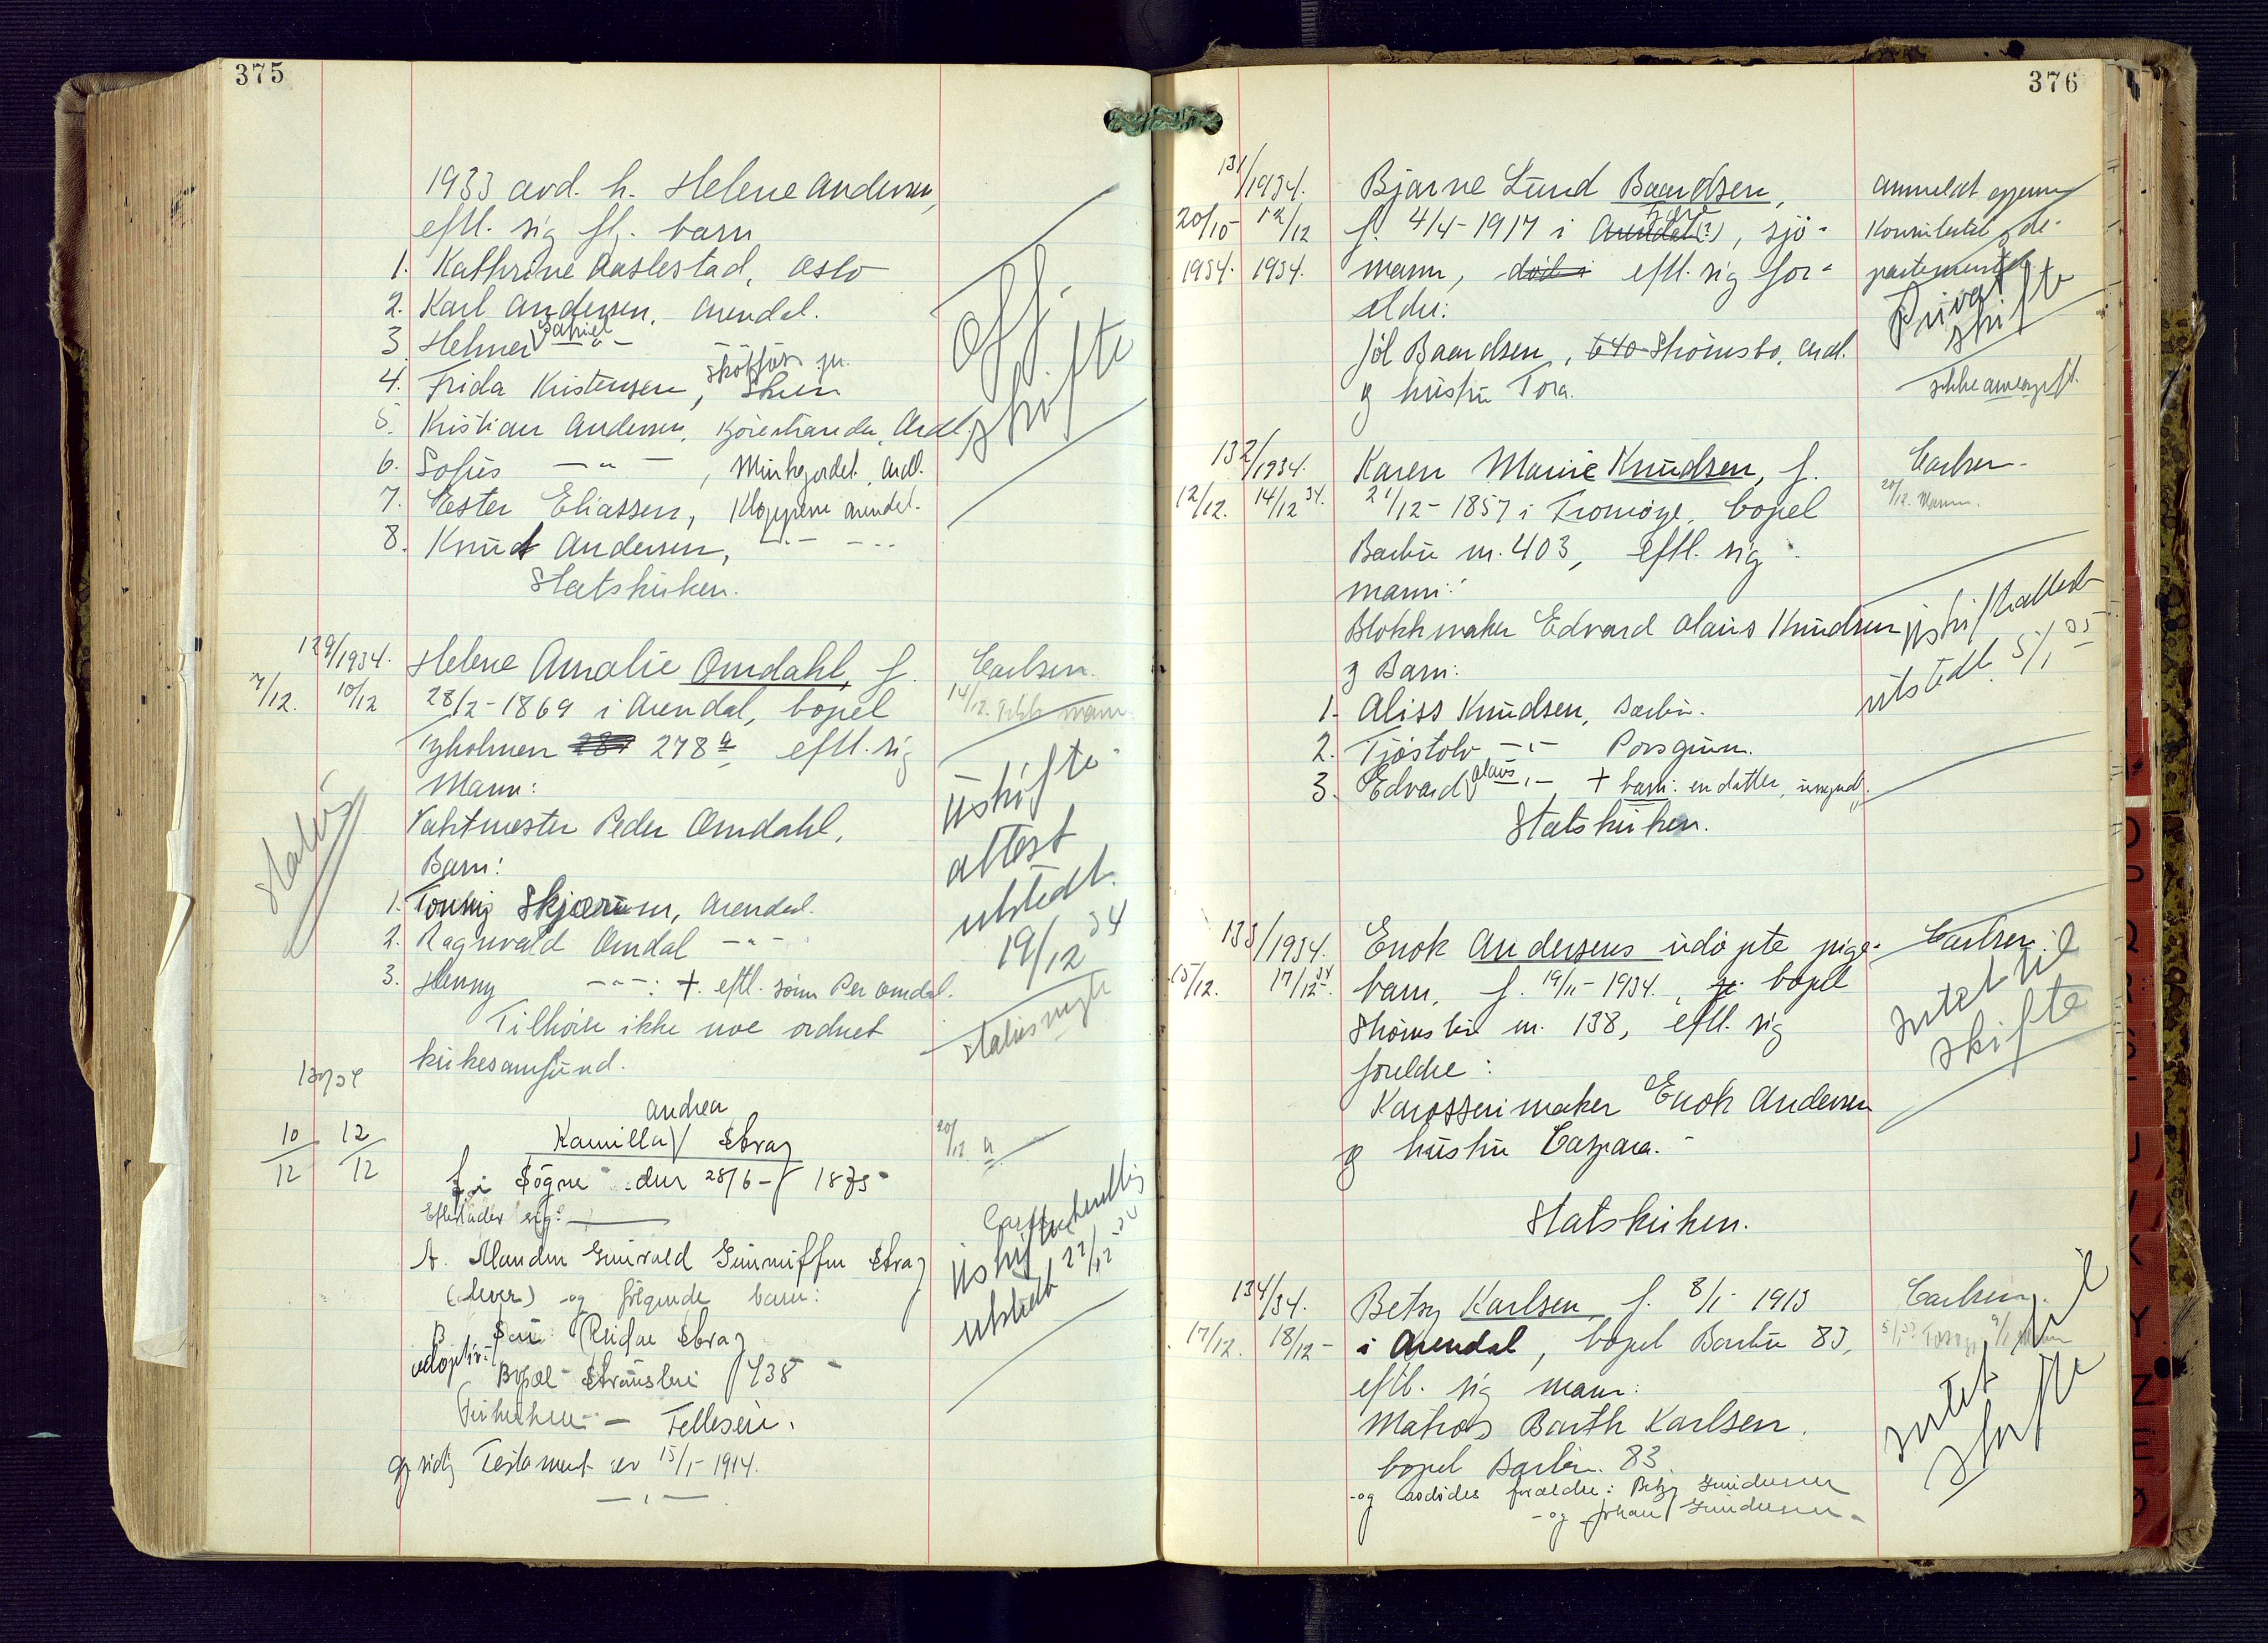 375
1933 avd. h. Helene Andersen,
eftl. sig fl. barn
1. Kathrine Aaslestad, Oslo
2. Karl Andersen, Arendal.
3. Helmer Daniel -"-
4. Frida Kristensen, Skien
5. Kristian Andersen, Ardl.
6. Sofus -"-, Ardl.
7. Ester Eliassen, Kloppene Arendal.
8. Knut Andersen, -"-
Statskirken.
Off.
skifte
129/1934.
7/12. 10/12
Helene Amalie Omdahl, f.
28/2-1869 i Arendal, bopel
Tyholmen 278a, eftl. sig
Mann:
Vaktmester Peder Omdahl.
Barn:
1. Skjærum, Arendal.
2. Ragnvald Omdal -"-
3. Henny -"-: +. eftl. sönn Per Omdal.
Tilhörer ikke noe ordnet
kirkesamfund.
Carlsen.
14/12. mann
uskifte
attest
utstedt.
19/12 34
130/34
10/12 12/12
Andrea
Kamilla Stray
f. i Søgne den 28/6- 1875-
Efterlader sig:
A. Stray
(lever) og følgende barn:
B. Reidar Stray
adoptiv:
Bopæl
Tellesen.
Testament av 15/1-1914.
20/12
utstedt 22/12 34
376
131/1934.
20/10 12/12
1934. 1934.
Bjarne Lund Baardsen,
f. 4/4-1917 i Arendal(?), sjö-
mann, död i eftl. sig for-
eldre:
Jöl Baardsen, 640 Strömsbo, Ardl.
og hustru Tora.
anmeldt gjennem
Konsulatet og de-
partementet
Privat
skifte
132/1934.
12/12. 14/12 34.
Karen Marie Knudsen, f.
21/12-1857 i Tromöye, bopel
Barbu nr. 403, eftl. sig
mann:
Blokkmaker Edvard Olaus Knudsen
og Barn:
1. Aliss Knudsen, Barbu.
2. Tjöstolv -"- Porsgrunn.
3. Edvard Olaus -"- + barn: en datter, umynd.
Statskirken.
Carlsen.
20/12. Mann.
uskifteattest
utstedt 5/1 35
133/1934.
15/12. 17/12 34.
Enok Andersens udöpte pige-
barn, f. 19/11-1934., bopel
Strömsbu nr. 138, eftl. sig
foreldre:
Karosserimaker Enok Andersen
og hustru Caspara.
Statskirken.
Carlsen.
Intet til
skifte
134/34.
17/12. 18/12-
Betsy Karlsen f. 8/1-1913
i Arendal, bopel Barbu 83,
eftl. sig mann:
Matros Barth Karlsen.
bopel Barbu 83.
og avdödes foreldre: Betzy Gundersen
- og Johan Gundersen.
Carlsen.
Intet til
skifte